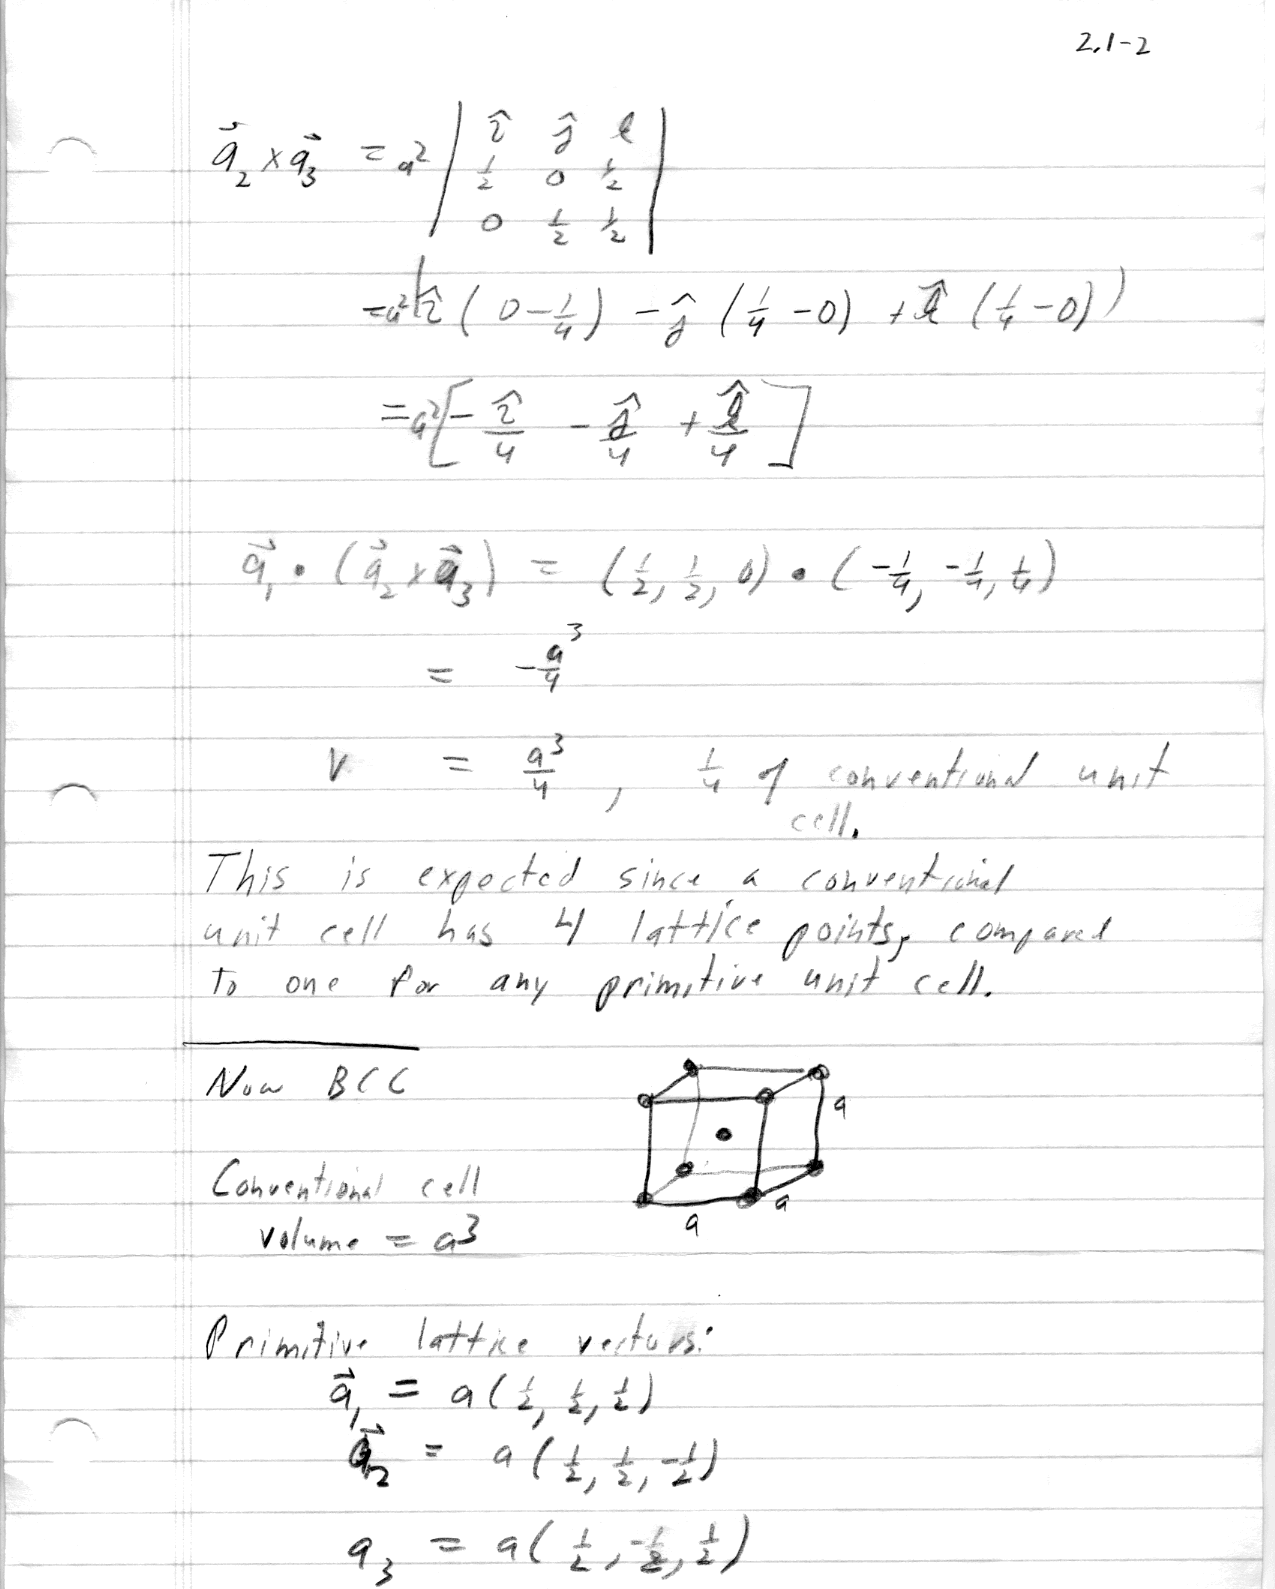 2.1-2
a⃗₂ × a⃗₃ = a² | î ĵ k̂ |
| 1/2 0 1/2 |
| 0 1/2 1/2 |
= a² ( î ( 0 - 1/4 ) - ĵ ( 1/4 - 0 ) + k̂ ( 1/4 - 0 ) )
= a² [ - î/4 - ĵ/4 + k̂/4 ]
a⃗₁ • ( a⃗₂ × a⃗₃ ) = ( 1/2, 1/2, 0 ) • ( -1/4, -1/4, 1/4 )
= - a³/4
V = a³/4 , 1/4 of conventional unit
cell.
This is expected since a conventional
unit cell has 4 lattice points, compared
to one for any primitive unit cell.
Now BCC
a
Conventional cell
volume = a³
a
a
Primitive lattice vectors:
a⃗₁ = a ( 1/2, 1/2, 1/2 )
a⃗₂ = a ( 1/2, 1/2, -1/2 )
a₃ = a ( 1/2, -1/2, 1/2 )